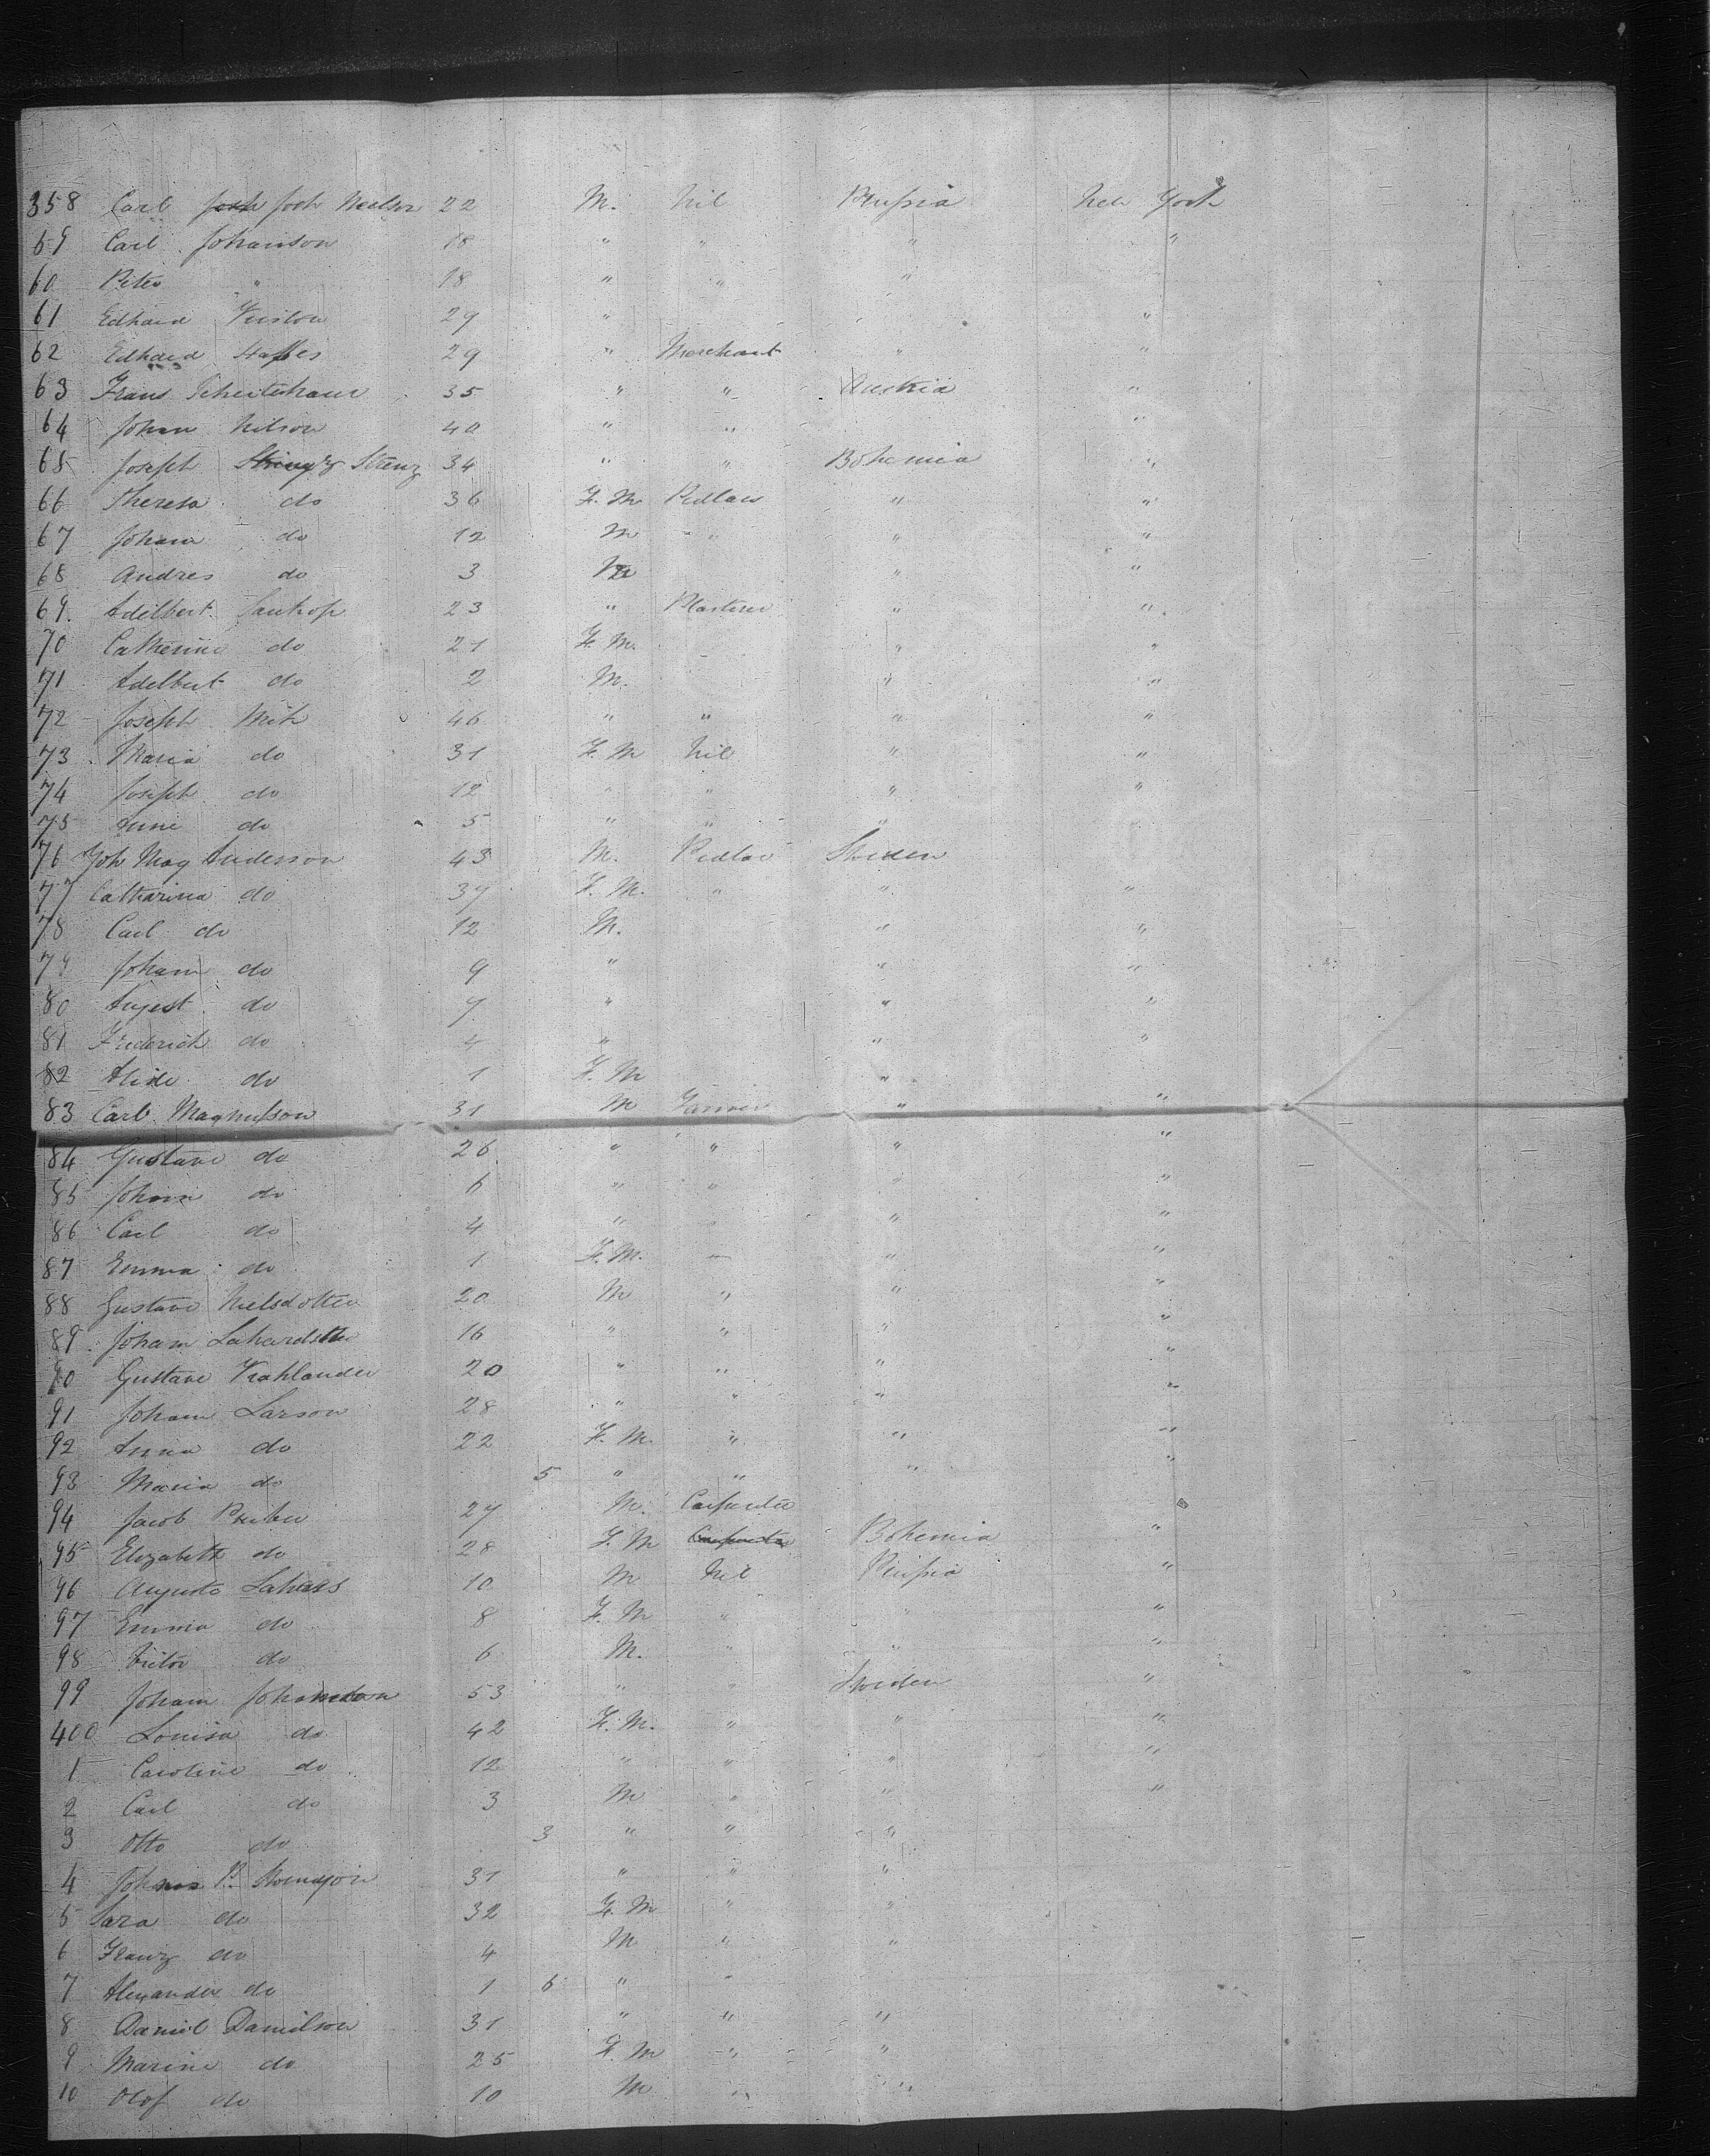 358 Carl Joch Joch Neelson 22 M. Nil Prussia New York
59 Carl Johanson 18 " " " "
60 Peter " 18 " " "
61 Edhard 29 " " "
62 Edhard Staffes 29 " Merchant " "
63 Frans 35 " " Austria "
64 Johan Nilson 40 " " "
65 Joseph Strenz 34 " " Bohemia "
66 Theresa do 36 F. M Pedlars " "
67 Johan do 12 M " " "
68 Andres do 3 M " "
69. Adelbert 23 " Plasterer " "
70 Catherine do 21 F. M. " "
71 Adelbert do 2 M. " "
72 Joseph Mik 46 " " " "
73 Maria do 31 F. M Nil " "
74 Joseph do 12 " " " "
75 Anne do 5 " " "
76 Joh Mag Anderson 43 M. Pedlar Sweden
77 Catharina do 37 F. M. " " "
78 Carl do 12 M. " "
79 Joham do 9 " " "
80 August do 7 " " "
81 Frederich do 4 " " "
82 Alide do 1 F. M "
83 Carl Magnusson 31 M Farmer " "
84 Gustave do 26 " " " "
85 Joham do 6 " " " "
86 Carl do 4 " " "
87 Emma do 1 F. M. " " "
88 Gustave Nielsdotter 20 M " " "
89. Joham 16 " " " "
90 Gustave 20 " " " "
91 Joham Larson 28 " " " "
92 Anna do 22 F. M. " " "
93 Maria do 5 " " " "
94 Jacob 27 M. Carpenter
95 Elizabeth do 28 F. M Carpenter Bohemia "
96 Augusto 10 M Nil Prussia "
97 Emma do 8 F. M " " "
98 Victor do 6 M. " " "
99 Joham Johanson 53 " " Sweden "
400 Louisa do 42 F. M. " " "
1 Caroline do 12 " " " "
2 Carl do 3 M " " "
3 Otto do 3 " " "
4 P. 31 " " "
5 Sara do 32 F. M " "
6 Franz do 4 M " "
7 Alexander do 1 6 " "
8 Daniel Danielson 31 " " "
9 Marine do 25 F. M " "
10 Olof do 10 M " "